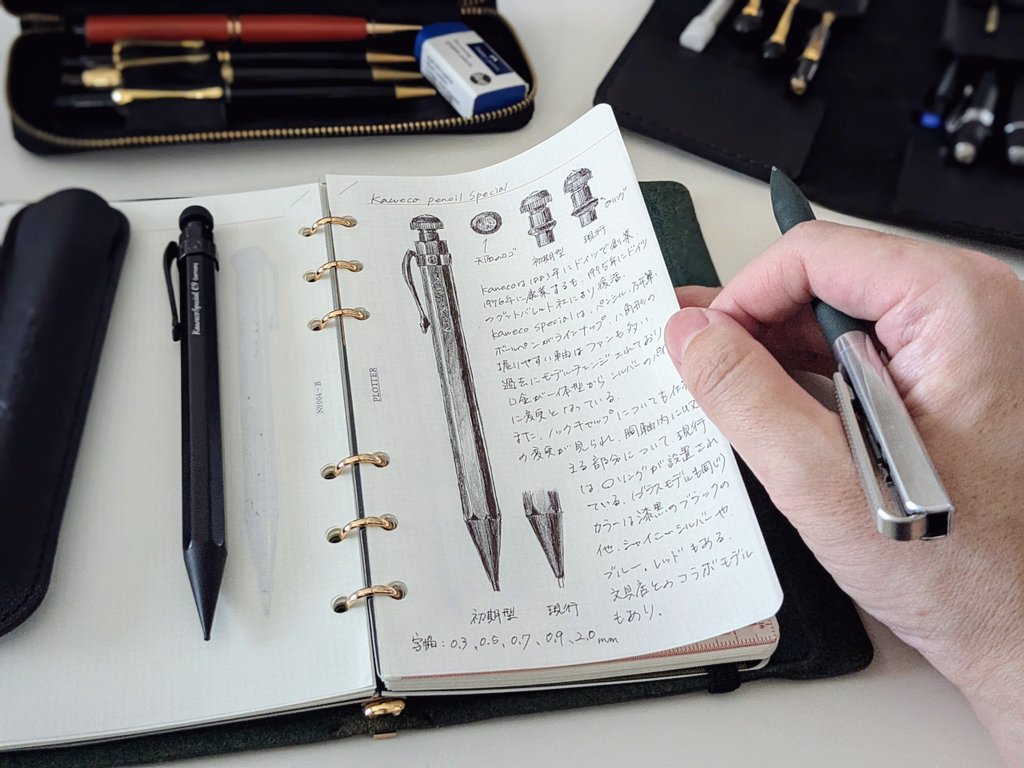 Kaweco pencil Special
天面のロゴ
初期型
現行
Oリング
Kawecoは1883年にドイツで創業
1976年に廃業するも、1995年にドイツ
のグットバレット社により復活。
Kaweco Specialは、ペンシル・万年筆・
ボールペンがラインナップ。八角形の
握りやすい軸はファンも多い。
過去にモデルチェンジされており
口金が一体型からシルバーのパイ
に変更となっている。
また、ノックキャップについても仕
の変更が見られ、胴軸内に収
まる部分について、現行
は、Oリングが設置され
ている。(ブラスモデルも同じ)
カラーは漆黒のブラックの
他、シャイニーシルバーや
ブルー・レッドもある。
文具店とのコラボモデル
もあり。
初期型
現行
字幅:0.3、0.5、0.7、0.9、2.0mm
PLOTTER
KawecoSpecial
Germany